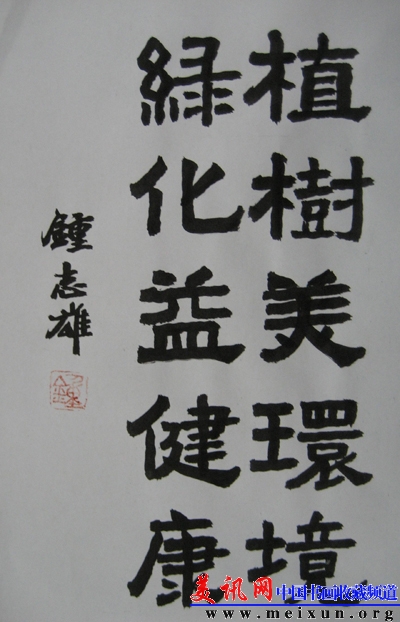 植樹美環境
綠化益健康
鍾志雄
美讯网 中国书画收藏频道
www.meixun.org